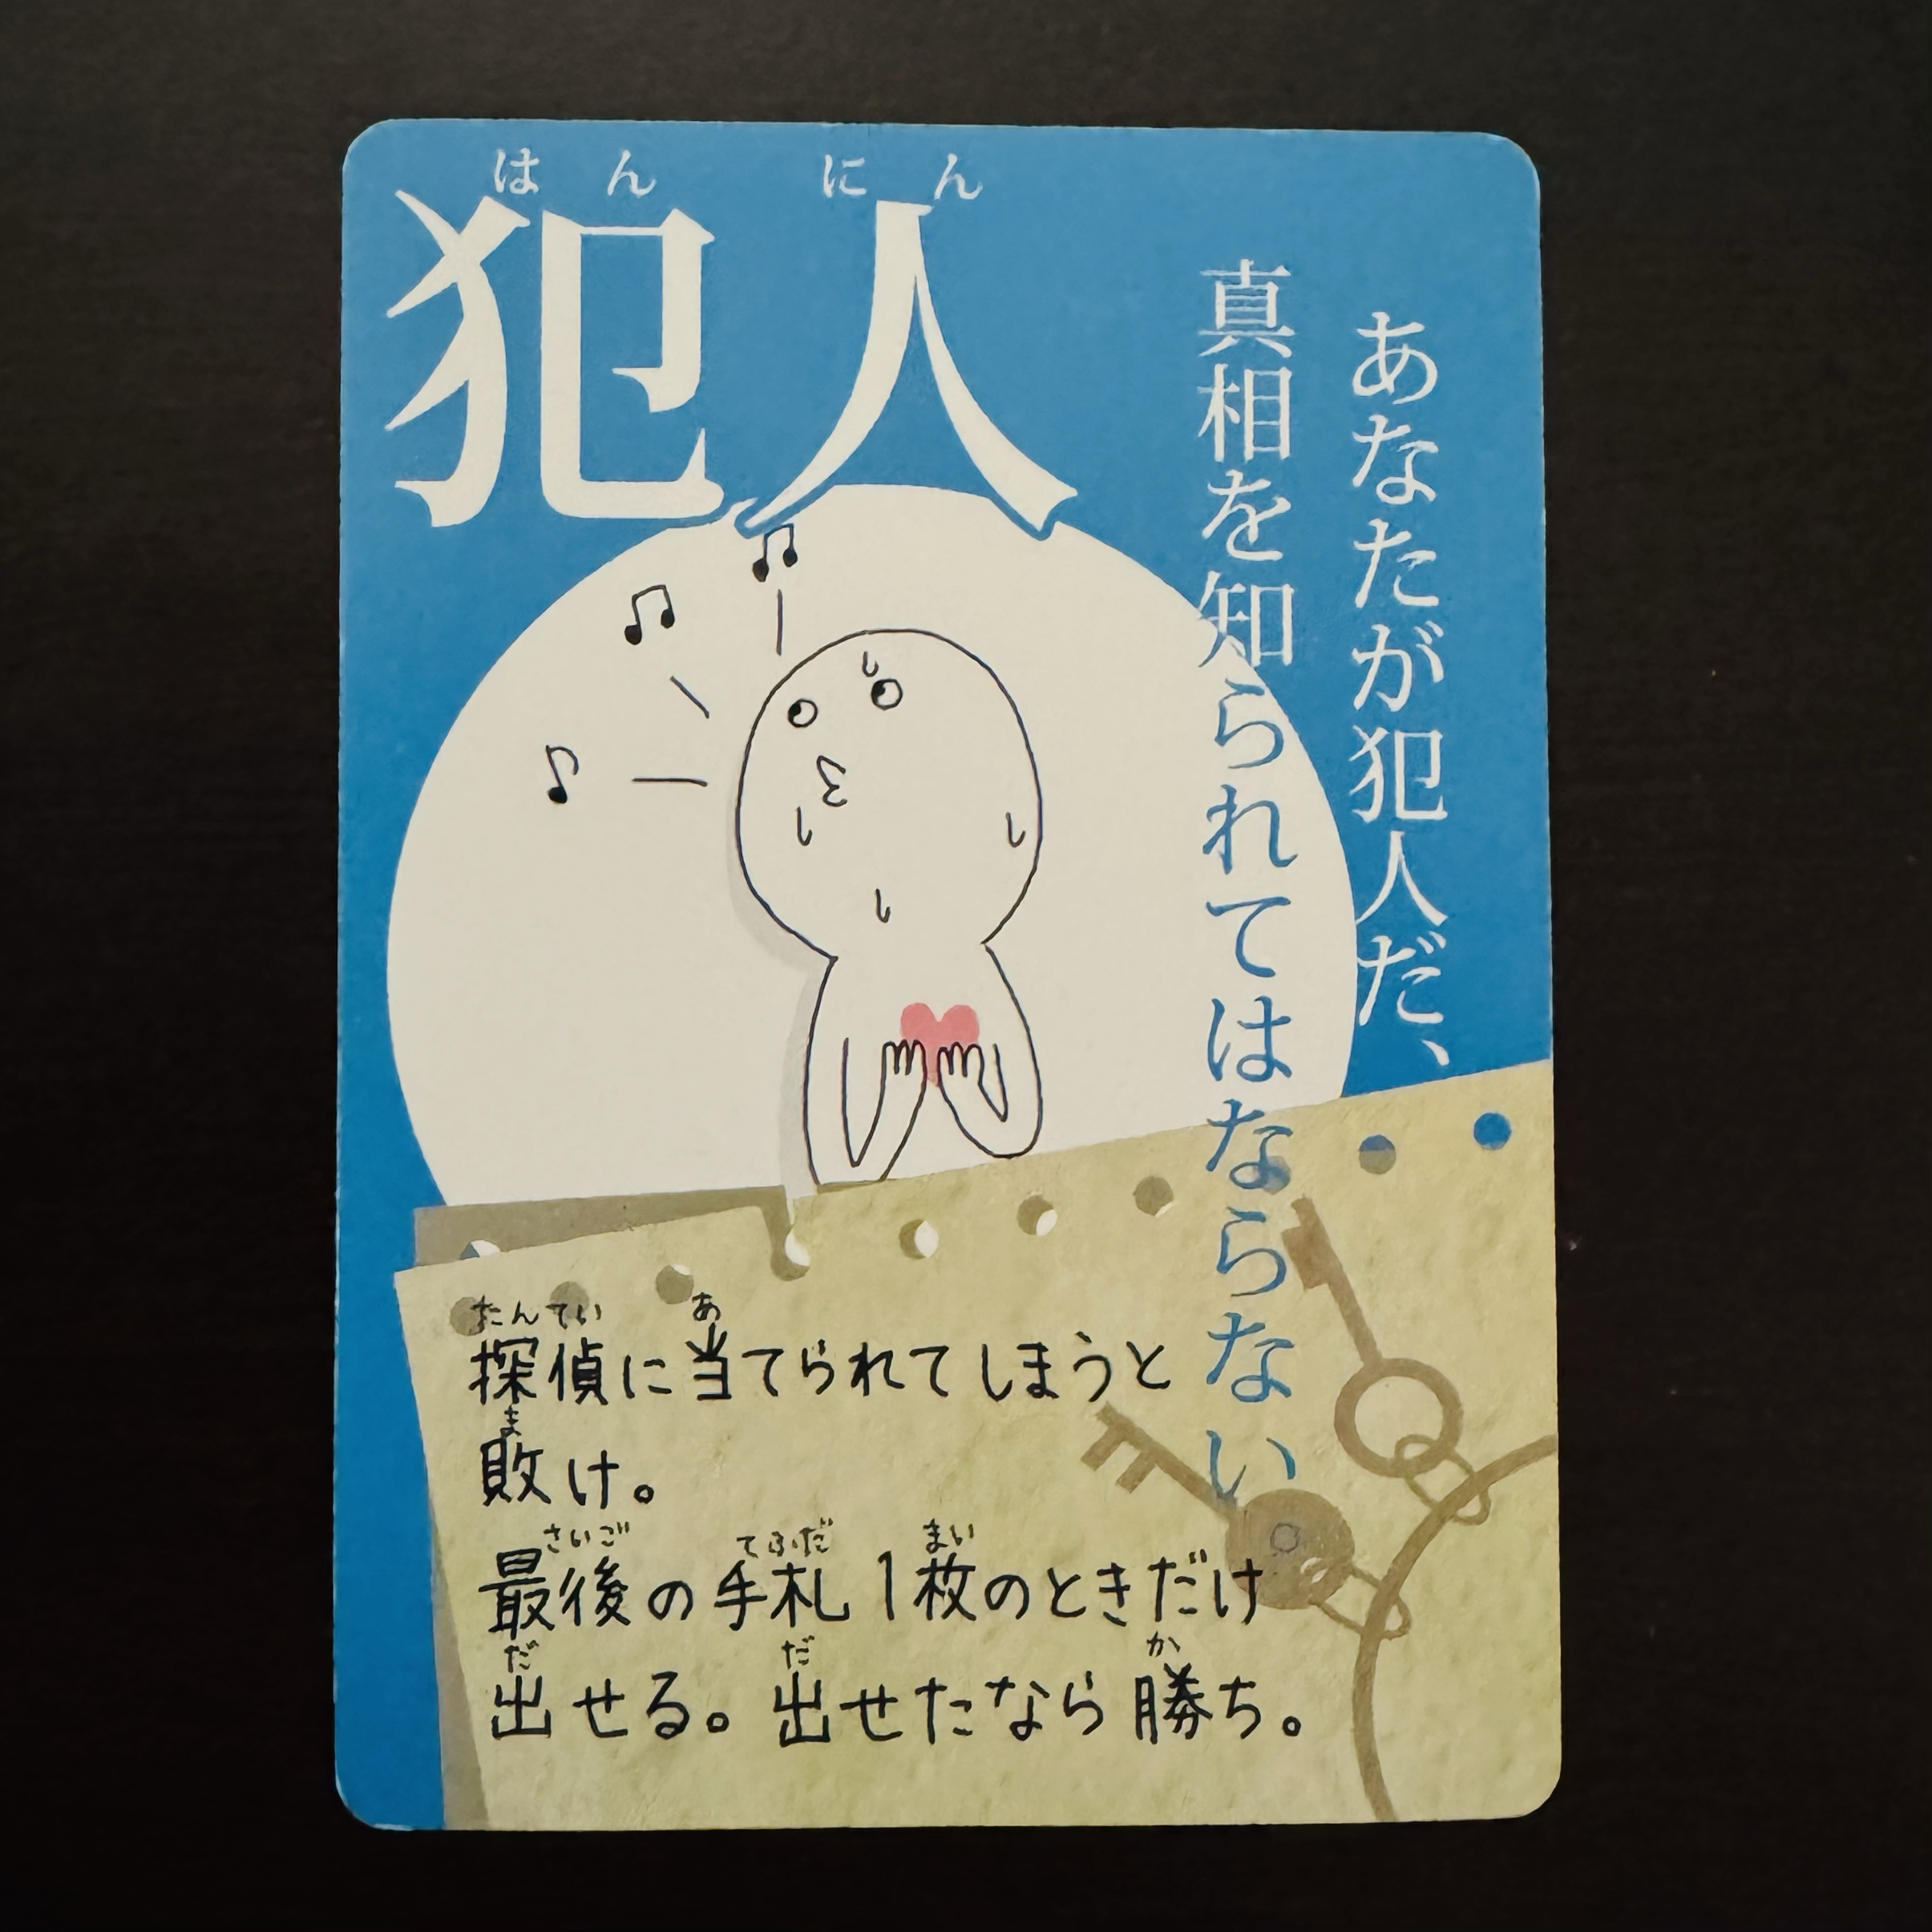 はんにん
犯人
あなたが犯人だ、
真相を知られてはならない
たんてい あ
探偵に当てられてしまうと
ま
敗け。
さいご てふだ まい
最後の手札1枚のときだけ
だ だ か
出せる。出せたなら勝ち。